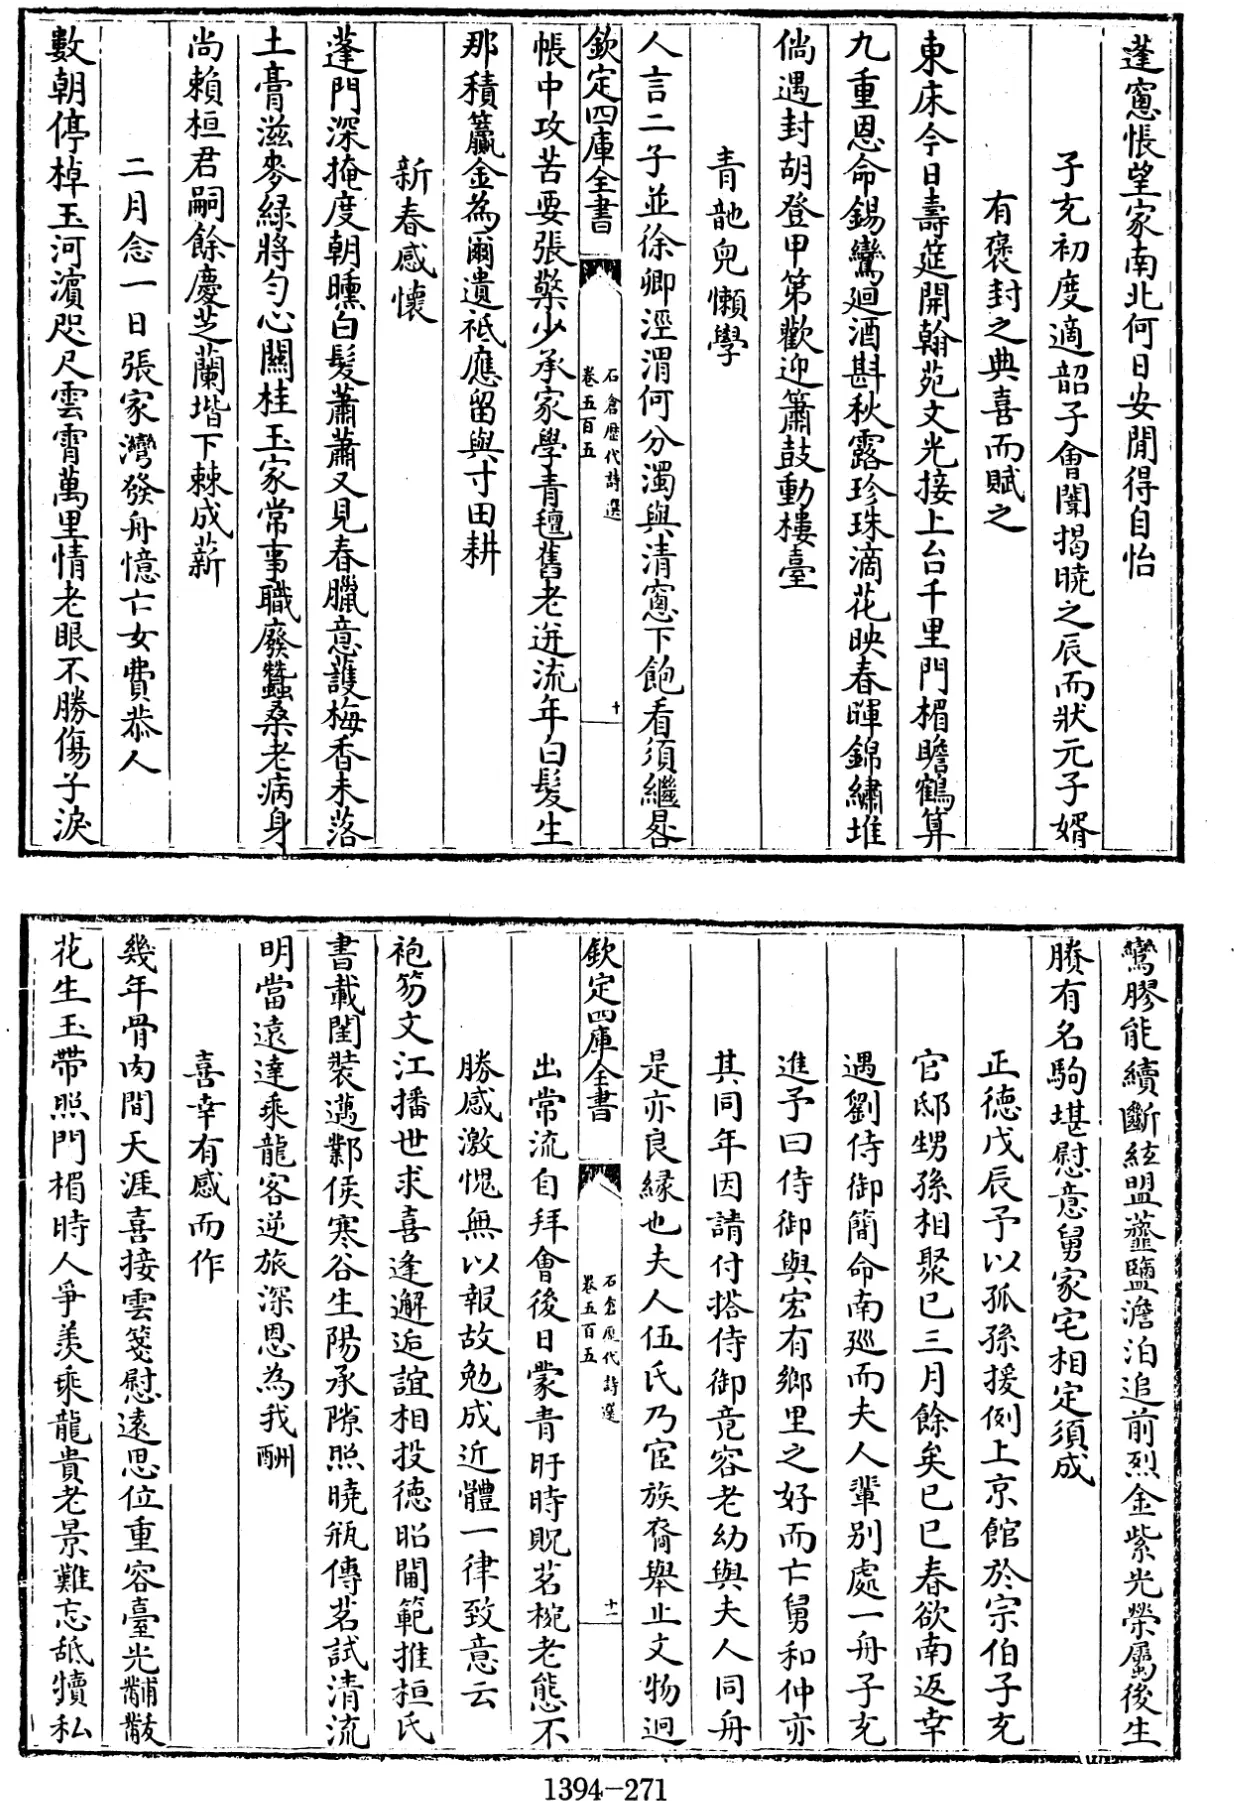 蓬窻悵望家南北何日安閒得自怡
子充初度適韶子會闈揭曉之辰而狀元子婿
有褒封之典喜而賦之
東床今日壽筵開翰苑文光接上台千里門楣瞻鶴算
九重恩命錫鸞廻酒斟秋露珍珠滴花映春暉錦繡堆
倘遇封胡登甲第歡迎簫鼓動樓臺
青訑兜懶學
人言二子並徐卿涇渭何分濁與清窻下飽看須繼晷
欽定四庫全書
石倉歴代詩選
卷五百五
十
帳中攻苦要張檠少承家學青氊舊老迸流年白髪生
那積籯金為爾遺祗應留與寸田耕
新春感懷
蓬門深掩度朝曛白髮蕭蕭又見春臘意護梅香未落
土膏滋麥緑將勻心關桂玉家常事職廢蠶桑老病身
尚賴桓君嗣餘慶芝蘭堦下棘成薪
二月念一日張家灣發舟憶亡女費恭人
數朝停棹玉河濵咫尺雲霄萬里情老眼不勝傷子淚
鸞膠能續斷絃盟虀鹽澹泊追前烈金紫光榮屬後生
賸有名駒堪慰意舅家宅相定須成
正德戊辰予以孤孫援例上京館於宗伯子充
官邸甥孫相聚已三月餘矣已巳春欲南返幸
遇劉侍御簡命南廵而夫人輩别處一舟子充
進予曰侍御與宏有鄉里之好而亡舅和仲亦
其同年因請付搭侍御竟容老幼與夫人同舟
是亦良縁也夫人伍氏乃宦族裔舉止文物迥
欽定四庫全書
石倉歴代詩選
卷五百五
十一
出常流自拜會後日蒙青盱時貺茗椀老態不
勝感激愧無以報故勉成近體一律致意云
袍笏文江播世求喜逢邂逅誼相投德昭閫範推桓氏
書載閨裝邁鄴侯寒谷生陽承隙照曉瓶傳茗試清流
明當遠達乘龍客逆旅深恩為我酬
喜幸有感而作
幾年骨肉間天涯喜接雲箋慰遠思位重容臺光黼黻
花生玉帶照門楣時人爭羨乘龍貴老景難忘舐犢私
1394-271